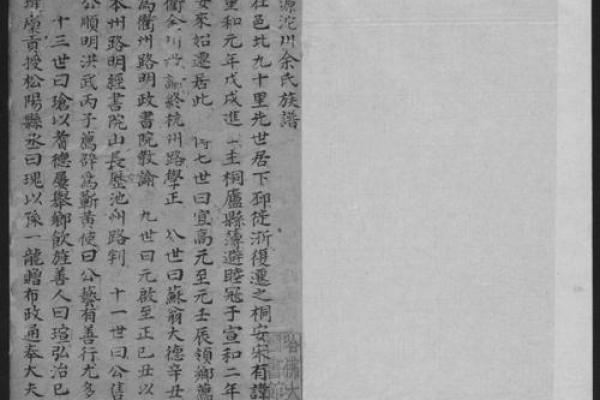 源沱川余氏族譜
在邑北九十里先世居下邳從浙復遷之桐安宋有諱
重和元年戊戌進士主桐廬縣簿避睦寇于宣和二年
安來始遷居此 七世曰宣高元至元壬辰領鄉薦
衢 終杭州路學正 八世曰蘇翁大德辛丑
為衢州路明政書院教諭 九世曰元啟至正己丑以
本州路明經書院山長歷池州路判 十一世曰公售
公順明洪武丙子薦辟為蘄黃使曰公藝有善行尤多
十三世曰瑲以耆德屢舉鄉飲旌善人曰瑄弘治己
瑋庠貢授松陽縣丞曰瑰以孫一龍贈布政通奉大夫
哈佛大